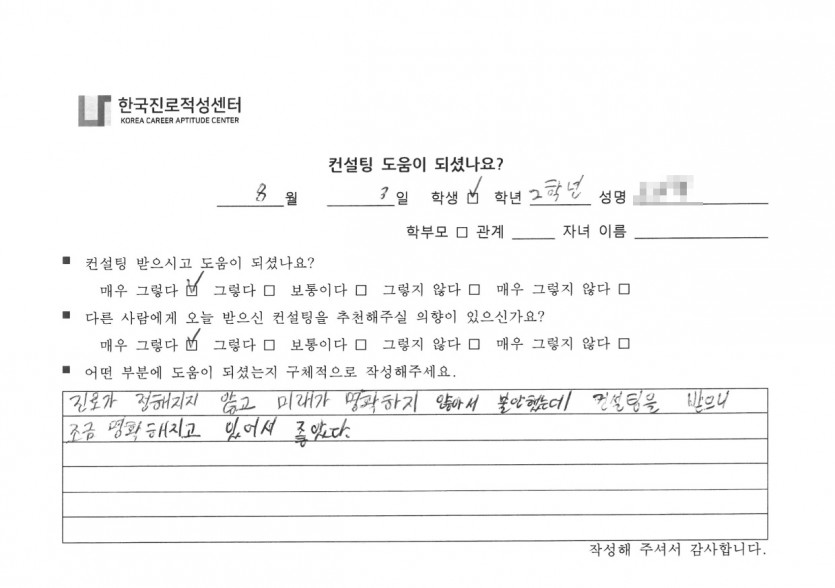 한국진로적성센터
KOREA CAREER APTITUDE CENTER
컨설팅 도움이 되셨나요?
8 월 3 일 학생 ☑ 학년 2학년 성명
학부모 □ 관계 자녀 이름
■ 컨설팅 받으시고 도움이 되셨나요?
매우 그렇다 ☑ 그렇다 □ 보통이다 □ 그렇지 않다 □ 매우 그렇지 않다 □
■ 다른 사람에게 오늘 받으신 컨설팅을 추천해주실 의향이 있으신가요?
매우 그렇다 ☑ 그렇다 □ 보통이다 □ 그렇지 않다 □ 매우 그렇지 않다 □
■ 어떤 부분에 도움이 되셨는지 구체적으로 작성해주세요.
진로가 정해지지 않고 미래가 명확하지 않아서 불안했는데 컨설팅을 받으니
조금 명확해지고 있어서 좋았다.
작성해 주셔서 감사합니다.